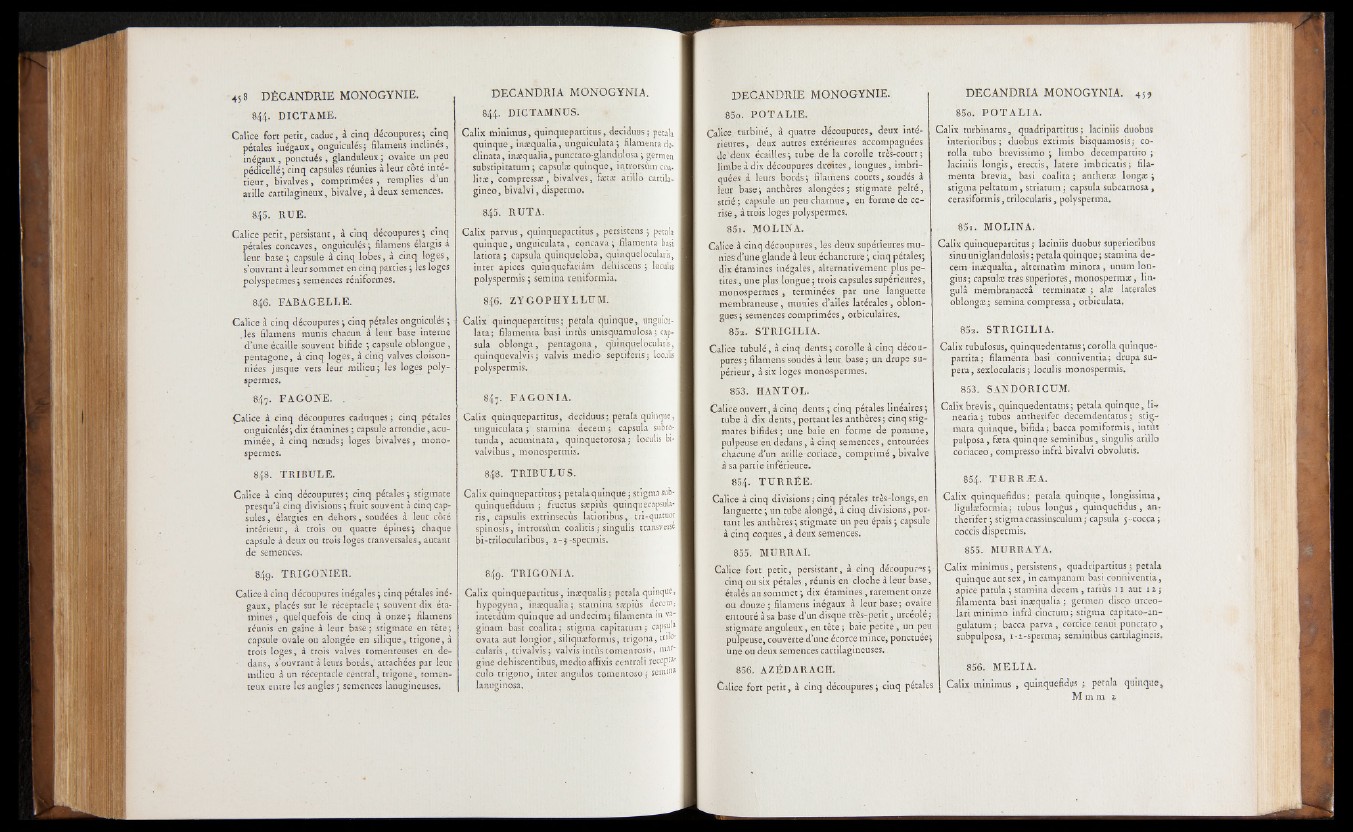 458 DÉCANDRIE MONOGYNIE.
844. DICTAME.
Calice fort petit, caduc, à cinq découpures; cinq
pétales inégaux, onguiculés; filamens inclinés,
inégaux, ponctués, glanduleux; ovaire un peu
pédicellé; cinq capsules réunies à leur côté inté-
rieur, bivalves, comprimées, remplies d'un
arille cartilagineux, bivalve, à deux semences.
845. RUE.
Calice petit, persistant, à cinq découpures; cinq
pétales concaves, onguiculés; filamens élargis à
leur base; capsule à cinq lobes, à cinq loges,
s'ouvrant à leur sommet en cinq parties; les loges
polyspermes; semences réniformes.
846. FABAGELLE.
Calice à cinq découpures; cinq pétales onguiculés;
les filamens munis chacun à leur base interne
d'une écaille souvent bifide; capsule oblongue,
pentagone, à cinq loges, à cinq valves cloison-
nées jusque vers leur milieu; les loges poly-
spermes.
847. FAGONE.
Calice à cinq découpures caduques; cinq pétales
onguiculés; dix étamines; capsule arrondie, acu-
minée, à cinq nœuds; loges bivalves, mono-
spermes.
848. TRIBULE.
Calice à cinq découpures; cinq pétales; stigmate
presqu'à cinq divisions; fruit souvent à cinq cap-
sules, élargies en dehors, soudées à leur côté
intérieur, à trois ou quatre épines; chaque
capsule à deux ou trois loges tranversales, autant
de semences.
849. TRIGONIER.
Calice à cinq découpures inégales; cinq pétales iné-
gaux, placés sur le réceptacle; souvent dix éta-
mines, quelquefois de cinq à onze; filamens
réunis en gaîne à leur base; stigmate en tête;
capsule ovale ou alongée en silique, trigone, à
trois loges, à trois valves tomenteuses en de-
dans, s'ouvrant à leurs bords, attachées par leur
milieu à un réceptacle central, trigone, tomen-
teux entre les angles; semences lanugineuses.
DECANDRIA MONOGYNIA.
844. DICTAMNUS.
Calix minimus, quinquepartitus, deciduus; petala
quinque, inæqualia, unguiculata; filamenta de-
clinata, inæqualia, punctato-glandulosa; germen
substipitatum; capsulæ quinque, introrsùm coa-
litæ, compressæ, bivalves, fœtæ arillo cartila-
gineo, bivalvi, dispermo.
845. RUTA.
Calix parvus, quinquepartitus, persistens; petala
quinque, unguiculata, concava; filamenta basi
latiora; capsula quinqueloba, quinquelocularis,
inter apices quinquefariàm dehiscens; loculis
polyspermis; semina reniformia.
846. ZYGOPHYLLUM.
Calix quinquepartitus; petala quinque, unguicu-
lata; filamenta basi intùs unisquamulosa; cap-
sula oblonga, pentagona, quinquelocularis,
quinquevalvis; valvis medio septiferis; loculis
polyspermis.
847. FAGONIA.
Calix quinquepartitus, deciduus; petala quinque,
unguiculata; stamina decem; capsula subro-
tunda, acuminata, quinquetorosa; loculis bi-
valvibus, monospermis.
848. TRIBULUS.
Calix quinquepartitus; petala quinque; stigma sub-
quinquefidum; fructus sæpiùs quinquecapsula-
ris, capsulis extrinsecùs latioribus, tri-quatuor
spinosis, introrsùm coalitis; singulis transversè
bi-trilocularibus, 2-3-spermis.
849. TRIGONIA.
Calix quinquepartitus, inæqualis; petala quinque,
hypogyna, inæqualia; stamina sæpiùs decem,
interdùm quinque ad undecim; filamenta in va-
ginam basi coalita; stigma capitatum; capsula
ovata aut longior, siliquæformis, trigona, trilo-
cularis, trivalvis; valvis intùs tomentosis, mar-
gine dehiscentibus, medio affixis centrali recepta-
culo trigono, inter angulos tomentoso; semina
lanuginosa.
DECANDRIE MONOGYNIE.
850. POTALIE.
Calice turbiné, à quatre découpures, deux inté-
rieures, deux autres extérieures accompagnées
de deux écailles; tube de la corolle très-court;
limbe à dix découpures droites, longues, imbri-
quées à leurs bords; filamens courts, soudés à
leur base; anthères alongées; stigmate pelté,
strié; capsule un peu charnue, en forme de ce-
rise, à trois loges polyspermes.
851. MOLINA.
Calice à cinq découpures, les deux supérieures mu-
nies d'une glande à leur échancrure; cinq pétales;
dix étamines inégales, alternativement plus pe-
tites, une plus longue; trois capsules supérieures,
monospermes, terminées par une languette
membraneuse, munies d'ailes latérales, oblon-
gues; semences comprimées, orbiculaires.
852. STRIGILIA.
Calice tubulé, à cinq dents; corolle à cinq décou-
pures; filamens soudés à leur base; un drupe su-
périeur, à six loges monospermes.
853. HANTOL.
Calice ouvert, à cinq dents; cinq pétales linéaires;
tube à dix dents, portant les anthères; cinq stig-
mates bifides; une baie en forme de pomme,
pulpeuse en dedans, à cinq semences, entourées
chacune d'un arille coriace, comprimé, bivalve
à sa partie inférieure.
854. TURRÉE.
Calice à cinq divisions; cinq pétales très-longs, en
languette; un tube alongé, à cinq divisions, por-
tant les anthères; stigmate un peu épais; capsule
à cinq coques, à deux semences.
855. MURRAI.
Calice fort petit, persistant, à cinq découpures;
cinq ou six pétales, réunis en cloche à leur base,
étalés au sommet; dix étamines, rarement onze
ou douze; filamens inégaux à leur base; ovaire
entouré à sa base d'un disque très-petit, urcéolé;
stigmate anguleux, en tête; baie petite, un peu
pulpeuse, couverte d'une écorce mince, ponctuée;
une ou deux semences cartilagineuses.
856. AZÉDARACH.
Calice fort petit, à cinq découpures; cinq pétales
DECANDRIA MONOGYNIA. 459
850. POTALIA.
Calix turbinatus, quadripartitus; laciniis duobus
interioribus; duobus extimis bisquamosis; co-
rolla tubo brevissimo; limbo decempartito;
laciniis longis, erectis, latere imbricatis; fila-
menta brevia, basi coalita; antheræ longæ;
stigma peltatum, striatum; capsula subcarnosa,
cerasiformis, trilocularis, polysperma.
851. MOLINA.
Calix quinquepartitus; laciniis duobus superioribus
sinu uniglandulosis; petala quinque; stamina de-
cem inæqualia, alternatim minora, unum lon-
gius; capsulæ tres superiores, monospermæ, lin-
gulâ membranaceâ terminatæ; alæ laterales
oblongæ; semina compressa, orbiculata.
852. STRIGILIA.
Calix tubulosus, quinquedentatus; corolla quinque-
partita; filamenta basi conniventia; drupa su-
pera, sexlocularis; loculis monospermis.
853. SANDORICUM.
Calix brevis, quinquedentatus; petala quinque, li-
nearia; tubus antherifer decemdentatus; stig-
mata quinque, bifida; bacca pomiformis, intùs
pulposa, fœta quinque seminibus, singulis arillo
coriaceo, compresso infrà bivalvi obvolutis.
854. TURRÆA.
Calix quinquefidus; petala quinque, longissima,
ligulæformia; tubus longus, quinquefidus, an-
therifer; stigma crassiusculum; capsula 5-cocca;
coccis dispermis.
855. MURRAYA.
Calix minimus, persistens, quadripartitus; petala
quinque aut sex, in campanam basi conniventia,
apice patula; stamina decem, rariùs 11 aut 12;
filamenta basi inæqualia; germen disco urceo-
lari minimo infrà cinctum; stigma capitato-an-
gulatum; bacca parva, cortice tenui punctato,
subpulposa, 1-2-sperma; seminibus cartilagineis.
856. MELIA.
Calix minimus, quinquefidus; petala quinque,
Mmm 2